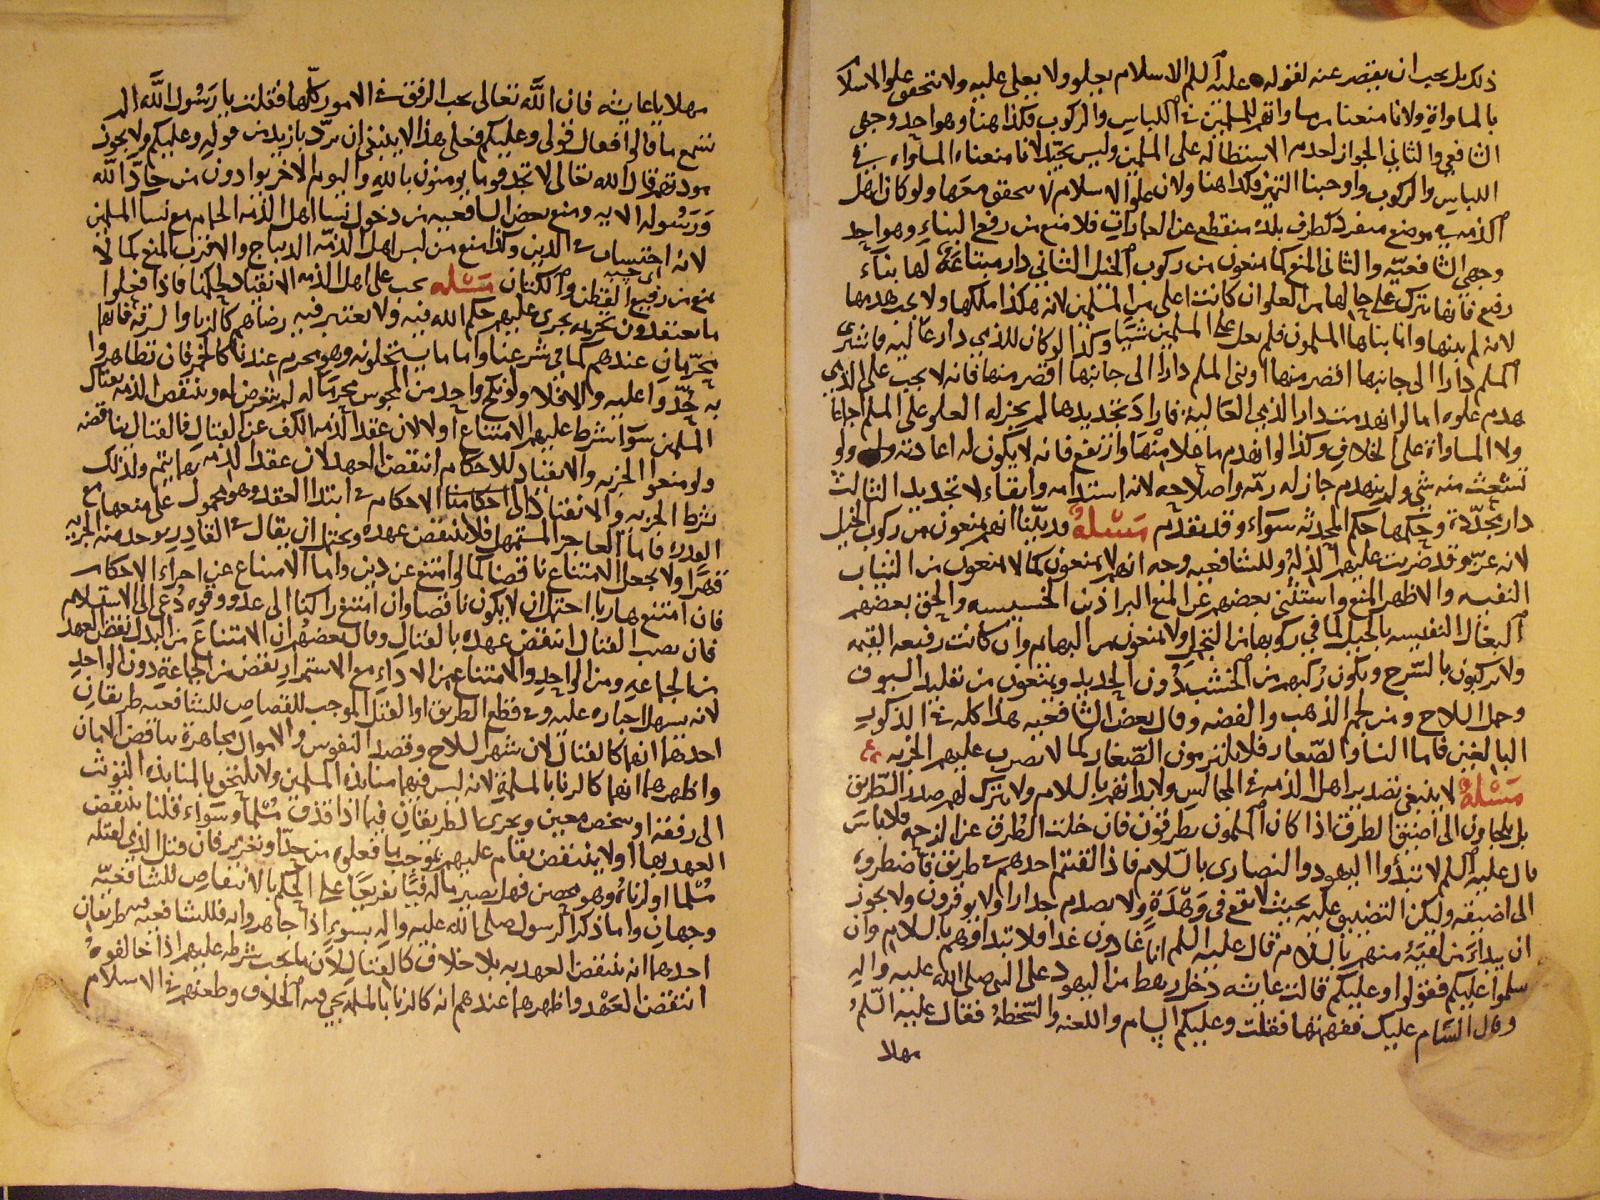 ذلك بل يجب ان يقصر عنه لقوله عليه السلم الاسلام يعلو ولا يعلى عليه ولا يتحقق علو الاسلام
بالمساواة ولانا منعنا من مساواتهم المسلمين في اللباس والركوب فكذا هنا وهو احد وجهي
الشافعي والثاني الجواز لعدم الاستطالة على المسلمين وليس بجيد لانا منعناه المساواة في
اللباس والركوب واوجبنا التميز فكذا هنا ولان علو الاسلام لا يتحقق معها ولو كان اهل
الذمه في موضع منفرد كطرف بلدة منقطع عن العمارات فلا منع من رفع البناء وهو احد
وجهي الشافعيّه والثاني المنع كما منعون من ركوب الخيل الثاني دار مبتاعة لها بناء
رفع فانها تترك على حالها من العلو ان كانت اعلى من المسلمين لانه هكذا ملكها ولا يجب هدمها
لانه لم يبنها وانما بناها المسلمون فلم يعل على المسلمين شيئا وكذا لو كان للذمي دار عالية فاشترى
المسلم دارا الى جانبها اقصر منها او بنى المسلم دارا الى جانبها اقصر منها فانه لا يجب على الذمي
هدم علوه اما لو انهدمت دار الذمي العالية فاراد تجديدها لم يجز له العلو على المسلم اجماعا
ولا المساواة على الخلاف وكذا لو انهدم ما علا منها وارتفع فانه لا يكون له اعادته ولو
تشعث منه شي ولم ينهدم جاز له رمّه واصلاحه لانه استدامه وابقاء لا تجديد الثالث
دار مجدّدة وحكمها حكم المحدثه سواء وقد تقدم مسئلة قد بيّنا انهم منعون من ركوب الخيل
لانه عزّ وقد ضربت عليهم الذلة وللشافعيه وجه انهم لا منعون كما لا منعون من الثياب
النفيسه والاظهر المنع واستثنى بعضهم عن المنع البراذين الخسيسه والحق بعضهم
البغال النفيسه بالخيل لما في ركوبها من التجمل ولا منعون من البهايم وان كانت رفيعه القيمه
ولا يركبون بالسّرج ويكون رُكبهم من الخشب دون الحديد ويمنعون من تقليد السيوف
وحمل السلاح ومن لجم الذهب والفضه وقال بعض الشافعيه هذا كله في الذكور
البالغين فاما النسا والصغار فلا يلتزمون الصّغار كما لا تضرب عليهم الجزيه
مسئلة لا ينبغي تصدير اهل الذمه في المجالس ولا بداتهم بالسلام ولا يترك لهم صدر الطريق
بل يلجاون الى اضيق الطرق اذا كان المسلمون يطرقون فان خلت الطرق عن الزحمه فلا باس
قال عليه السلم لا تبدأوا اليهود والنصارى بالسّلام فاذا لقيتم احدهم في طريق فاضطروه
الى اضيقه وليكن التضييق عليه بحيث لا يقع في وهْدَةٍ ولا يصدم جدارا ولا يوقرون ولا يجوز
ان يبداء من لقيَهُ منهم بالسلام قال عليه السلم انا غادون غدا فلا تبداوهم بالسلام وان
سلموا عليكم فقولوا وعليكم قالت عايشه دخل رهط من اليهود على النبي صلى الله عليه واله
وقال السام عليك ففهمتها فقلت وعليكم السام واللعنه والسّخطة فقال عليه السّلم
مهلا
مهلا يا عايشه فان الله تعالى يحب الرفق في الامور كلّها فقلت يا رسول الله الم
تسمع ما قالوا فقال قولي وعليكم فعلى هذا لا ينبغي ان يردّ بازيد من قوله وعليكم ولا يجوز
مودتهم قال الله تعالى لا تجد قوما يومنون بالله واليوم الاخر يوادون من حادّ الله
ورسُوله الايه ومنع بعض الشافعيه من دخول نسا اهل الذمه الحمام مع نسا المسلمين
لانه احتساب في الدين وكذا منع من لبس اهل الذمّه الديباج والاقرب المنع كما لا
منع من رفيع القطن والكتان مسئله يجب على اهل الذمه الانقياد لحكمنا فاذا فعلوا
ما يعتقدون تحريمه يجري عليهم حكم الله فيه ولا يعتبر فيه رضاهم كالزنا والسرقه فانهما
محرّمان عندهم كما في شرعنا واما ما يستحلونه وهو محرم عندنا كالخمر فان تظاهروا
به حُدّوا عليه والا فلا ولو نكح واحد من المجوس محرما له لم نتعرض له وينتقض الذمه بقتال
المسلمين سوآ شرط عليهم الامتناع او لا لان عقد الذمه الكف عن القتال فالقتال يناقضه
ولو منعوا الجزيه والانقياد للاحكام انتقض العهد لان عقد الذمه بهما يتم ولذلك
شرط الجزيه والانقياد الى احكامنا الاحكام في ابتدا العقد وهو محمول على منعها مع
القدره فاما العاجز المستمهل فلا ينتقض عهده ويحتمل ان يقال في القادر يوخذ منه الجزيه
قهرا ولا يجعل الامتناع ناقضا كما لو امتنع عن دين واما الامتناع عن اجراء الاحكام
فان امتنع هاربا احتمل ان لا يكون ناقضا وان امتنع راكنا الى عدو وقوه دُعي الى الاستسلام
فان نصب القتال انتقض عهده بالقتال وقال بعضهم ان الامتناع من البذل نقض العهد
من الجماعه ومن الواحد والامتناع من الاداء مع الاستمرار نقض من الجماعة دون الواحد
لانه يسهل اجباره عليه وفي قطع الطريق او القتل الموجب للقصاص للشافعيه طريقان
احدهما انهما كالقتال لان شهر السلاح وقصد النفوس والاموال مجاهرة يناقض الامان
واظهرهما انهما كالزنا بالمسلمة لانه ليس فيهما منابذة المسلمين ولا يلتحق بالمنابذه التوثب
الى رفقة او شخص معين ويجرى الطريقان فيما اذا قذف مُسْلما وسواء قلنا ينتقض
العهد بهما او لا ينتقض يقام عليهم موجب ما فعلوه من حدّ او تعزير فان قتل الذمي لقتله
مسْلما او لزناه وهو محصن فهل يصير ماله فيئا تفريعا على الحكم بالانتقاض للشافعيّه
وجهان واما ذكر الرسول صلى الله عليه واله بسوءٍ اذا جاهروا به فللشافعيه فيه طريقان
احدهما انه ينتقض العهد به بلا خلاف كالقتال لان ما يجب شرطه عليهم اذا خالفوه
انتقض العَهْد واظهرهما عندهم انه كالزنا بالمسلمه يجي فيه الخلاف وطعنهم في الاسلام